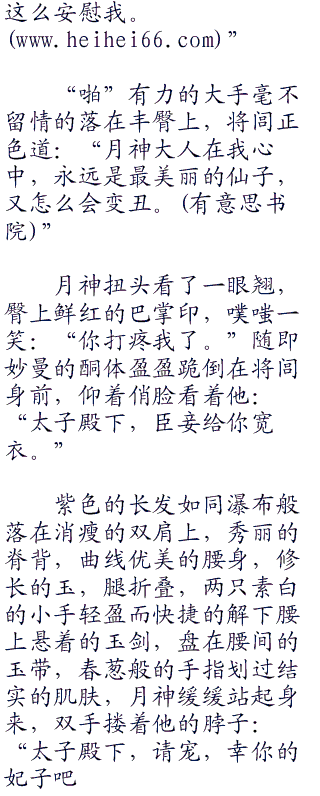 这么安慰我。
(www.heihei66.com)”
“啪”有力的大手毫不
留情的落在丰臀上，将闾正
色道：“月神大人在我心
中，永远是最美丽的仙子，
又怎么会变丑。(有意思书
院)”
月神扭头看了一眼翘，
臀上鲜红的巴掌印，噗嗤一
笑：“你打疼我了。”随即
妙曼的酮体盈盈跪倒在将闾
身前，仰着俏脸看着他：
“太子殿下，臣妾给你宽
衣。”
紫色的长发如同瀑布般
落在消瘦的双肩上，秀丽的
脊背，曲线优美的腰身，修
长的玉，腿折叠，两只素白
的小手轻盈而快捷的解下腰
上悬着的玉剑，盘在腰间的
玉带，春葱般的手指划过结
实的肌肤，月神缓缓站起身
来，双手搂着他的脖子：
“太子殿下，请宠，幸你的
妃子吧